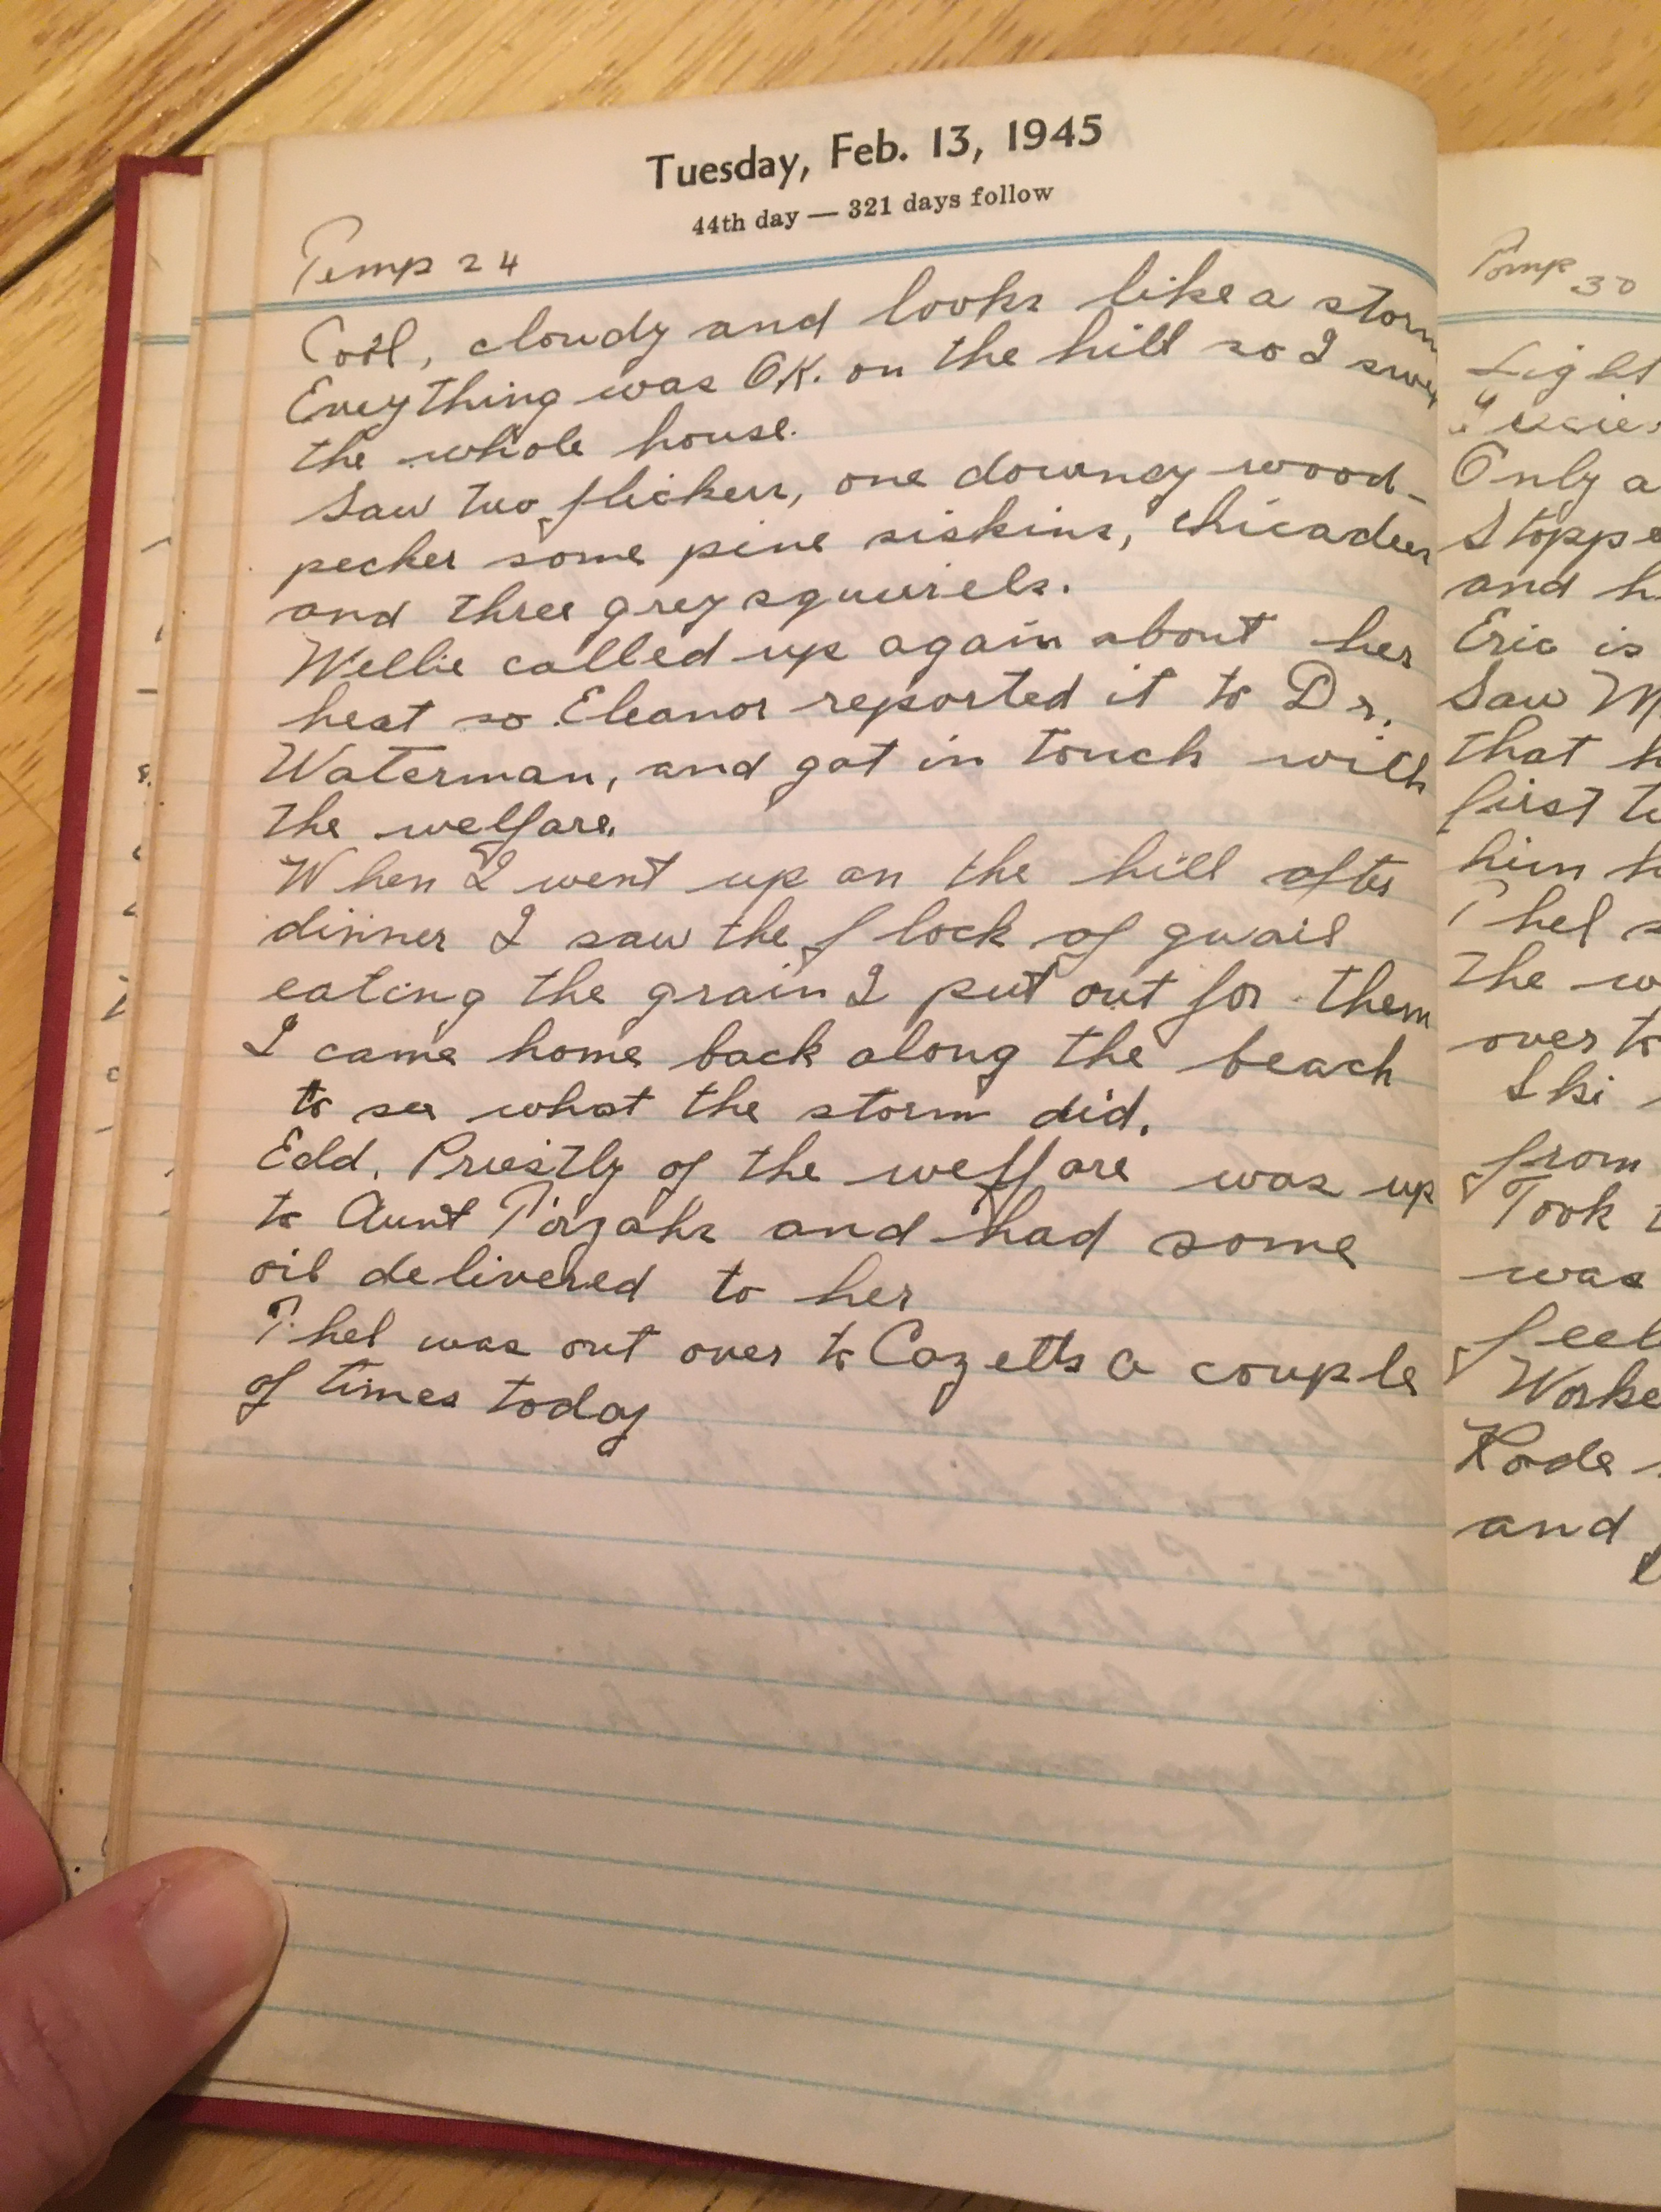 Tuesday, Feb. 13, 1945
44th day — 321 days follow
Temp 24
Cool, cloudy and looks like a storm
Eveything was OK. on the hill so I
the whole house.
Saw two flickers, one downey wood-
pecker some pine siskins, chicadees
and three grey squuriels.
Wellie called up again about her
heat so Eleanor reported it to Dr.
Waterman, and got in touch with
the welfare.
When I went up on the hill after
dinner I saw the flock of quail
eating the grain I put out for them
I came home back along the beach
to see what the storm did.
Edd. Priestly of the welfare was up
to Aunt Tirzahs and had some
oil delivered to her
Thel was out over to Cazetts a couple
of times today
Temp 30
Light
Only a
Stoppe
and h
Eric is
Saw M
that h
first to
him h
Thel s
the w
over to
Ski
from
Took t
was
feel
Worke
Rode
and